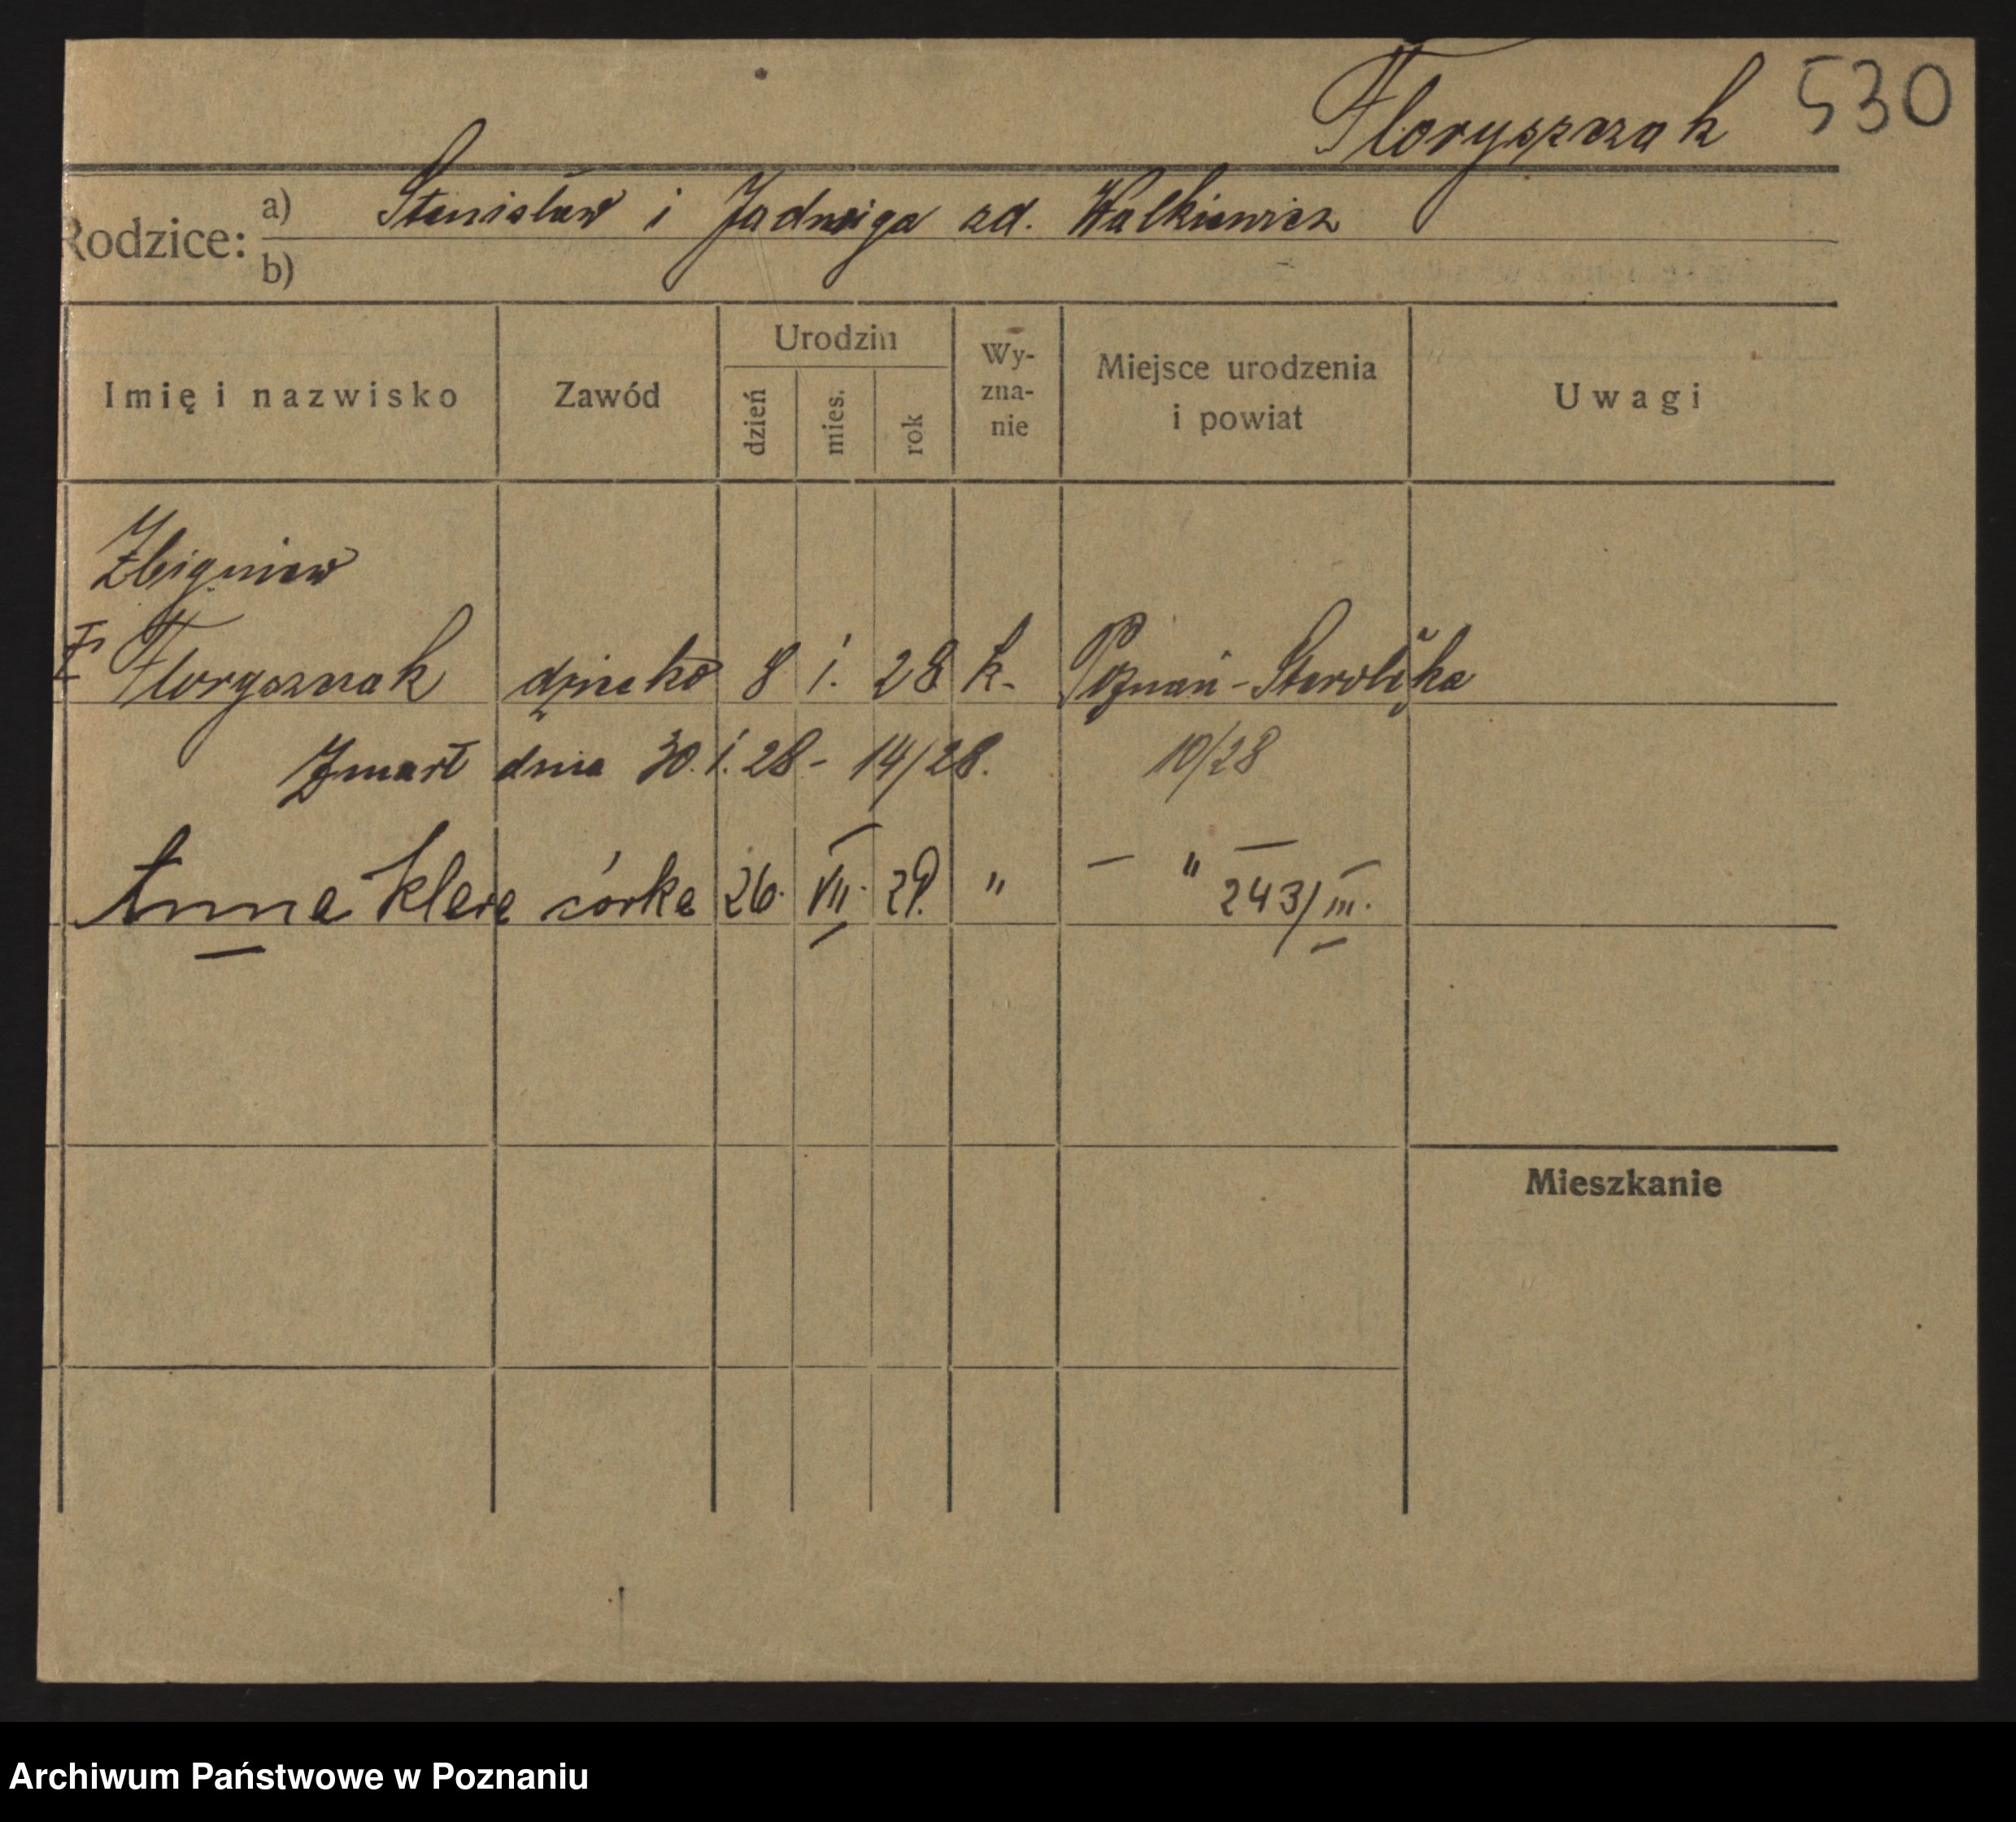 Floryszczak 530
Rodzice: a) Stanisław i Jadwiga zd. Walkiewicz
b)
Imię i nazwisko Zawód Urodzin dzień mies. rok Wy-zna-nie Miejsce urodzenia i powiat Uwagi
Zbigniew
Floryszczak dziecko 8 1. 28 k. Poznań-Starołęka
Zmarł dnia 30.1.28 - 14/28. 10/28
Anna Klara córka 26. VII. 29. " — " —
243/III.
Mieszkanie
Archiwum Państwowe w Poznaniu